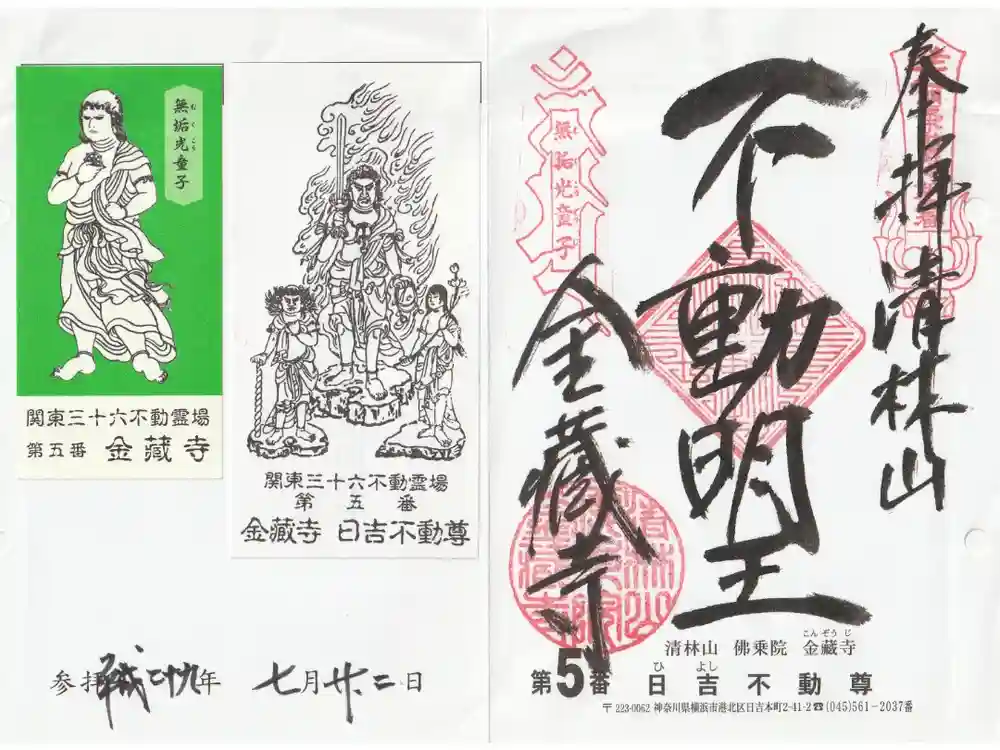 無垢光童子
むくこう
関東三十六不動霊場
第五番 金藏寺
関東三十六不動霊場
第五番
金藏寺 日吉不動尊
参拝 平成二十九年 七月廿二日
奉拝 清林山
不動明王
無垢光童子
む く こう
金藏寺
清林山 佛乗院 金藏寺
こんぞうじ
第5番 日吉不動尊
ひ よし
〒223-0062 神奈川県横浜市港北区日吉本町2-41-2☎(045)561-2037番